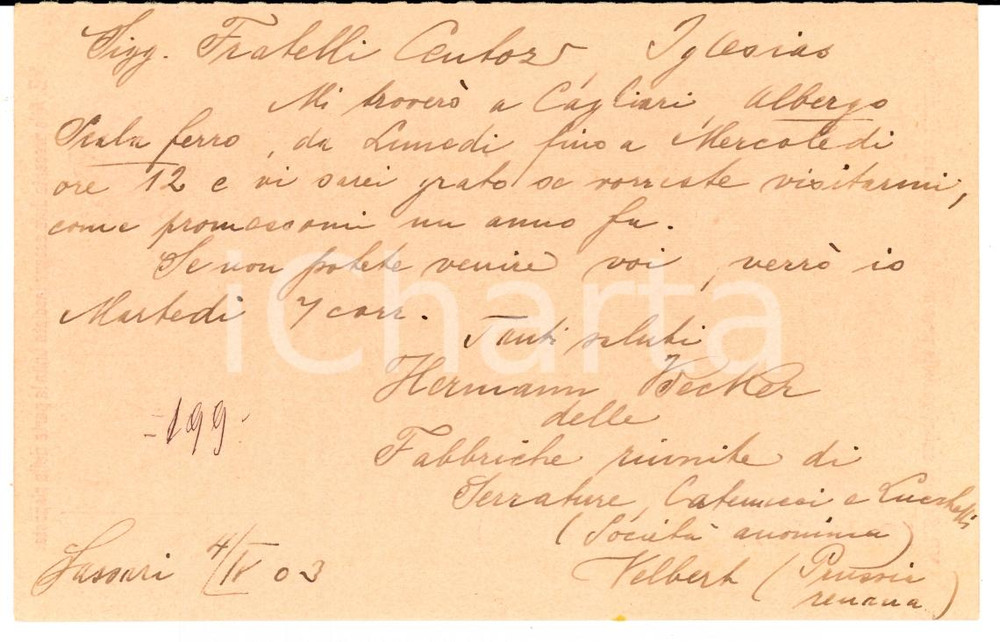 Sigg. Fratelli Centoz, Iglesias
Mi troverò a Cagliari, Albergo
Scala ferro, da Lunedi fino a Mercoledi
ore 12 e vi sarei grato se vorreste visitarmi,
come promessomi un anno fa.
Se non potete venire voi, verrò io
Martedi 7 corr.
Tanti saluti
Hermann Becker
delle
=199.
Fabbriche riunite di
Serrature, Catenacci e Lucchetti
(Società anonima)
Sassari 4/IV 03
Velbert (Prussia
renana)
iCharta